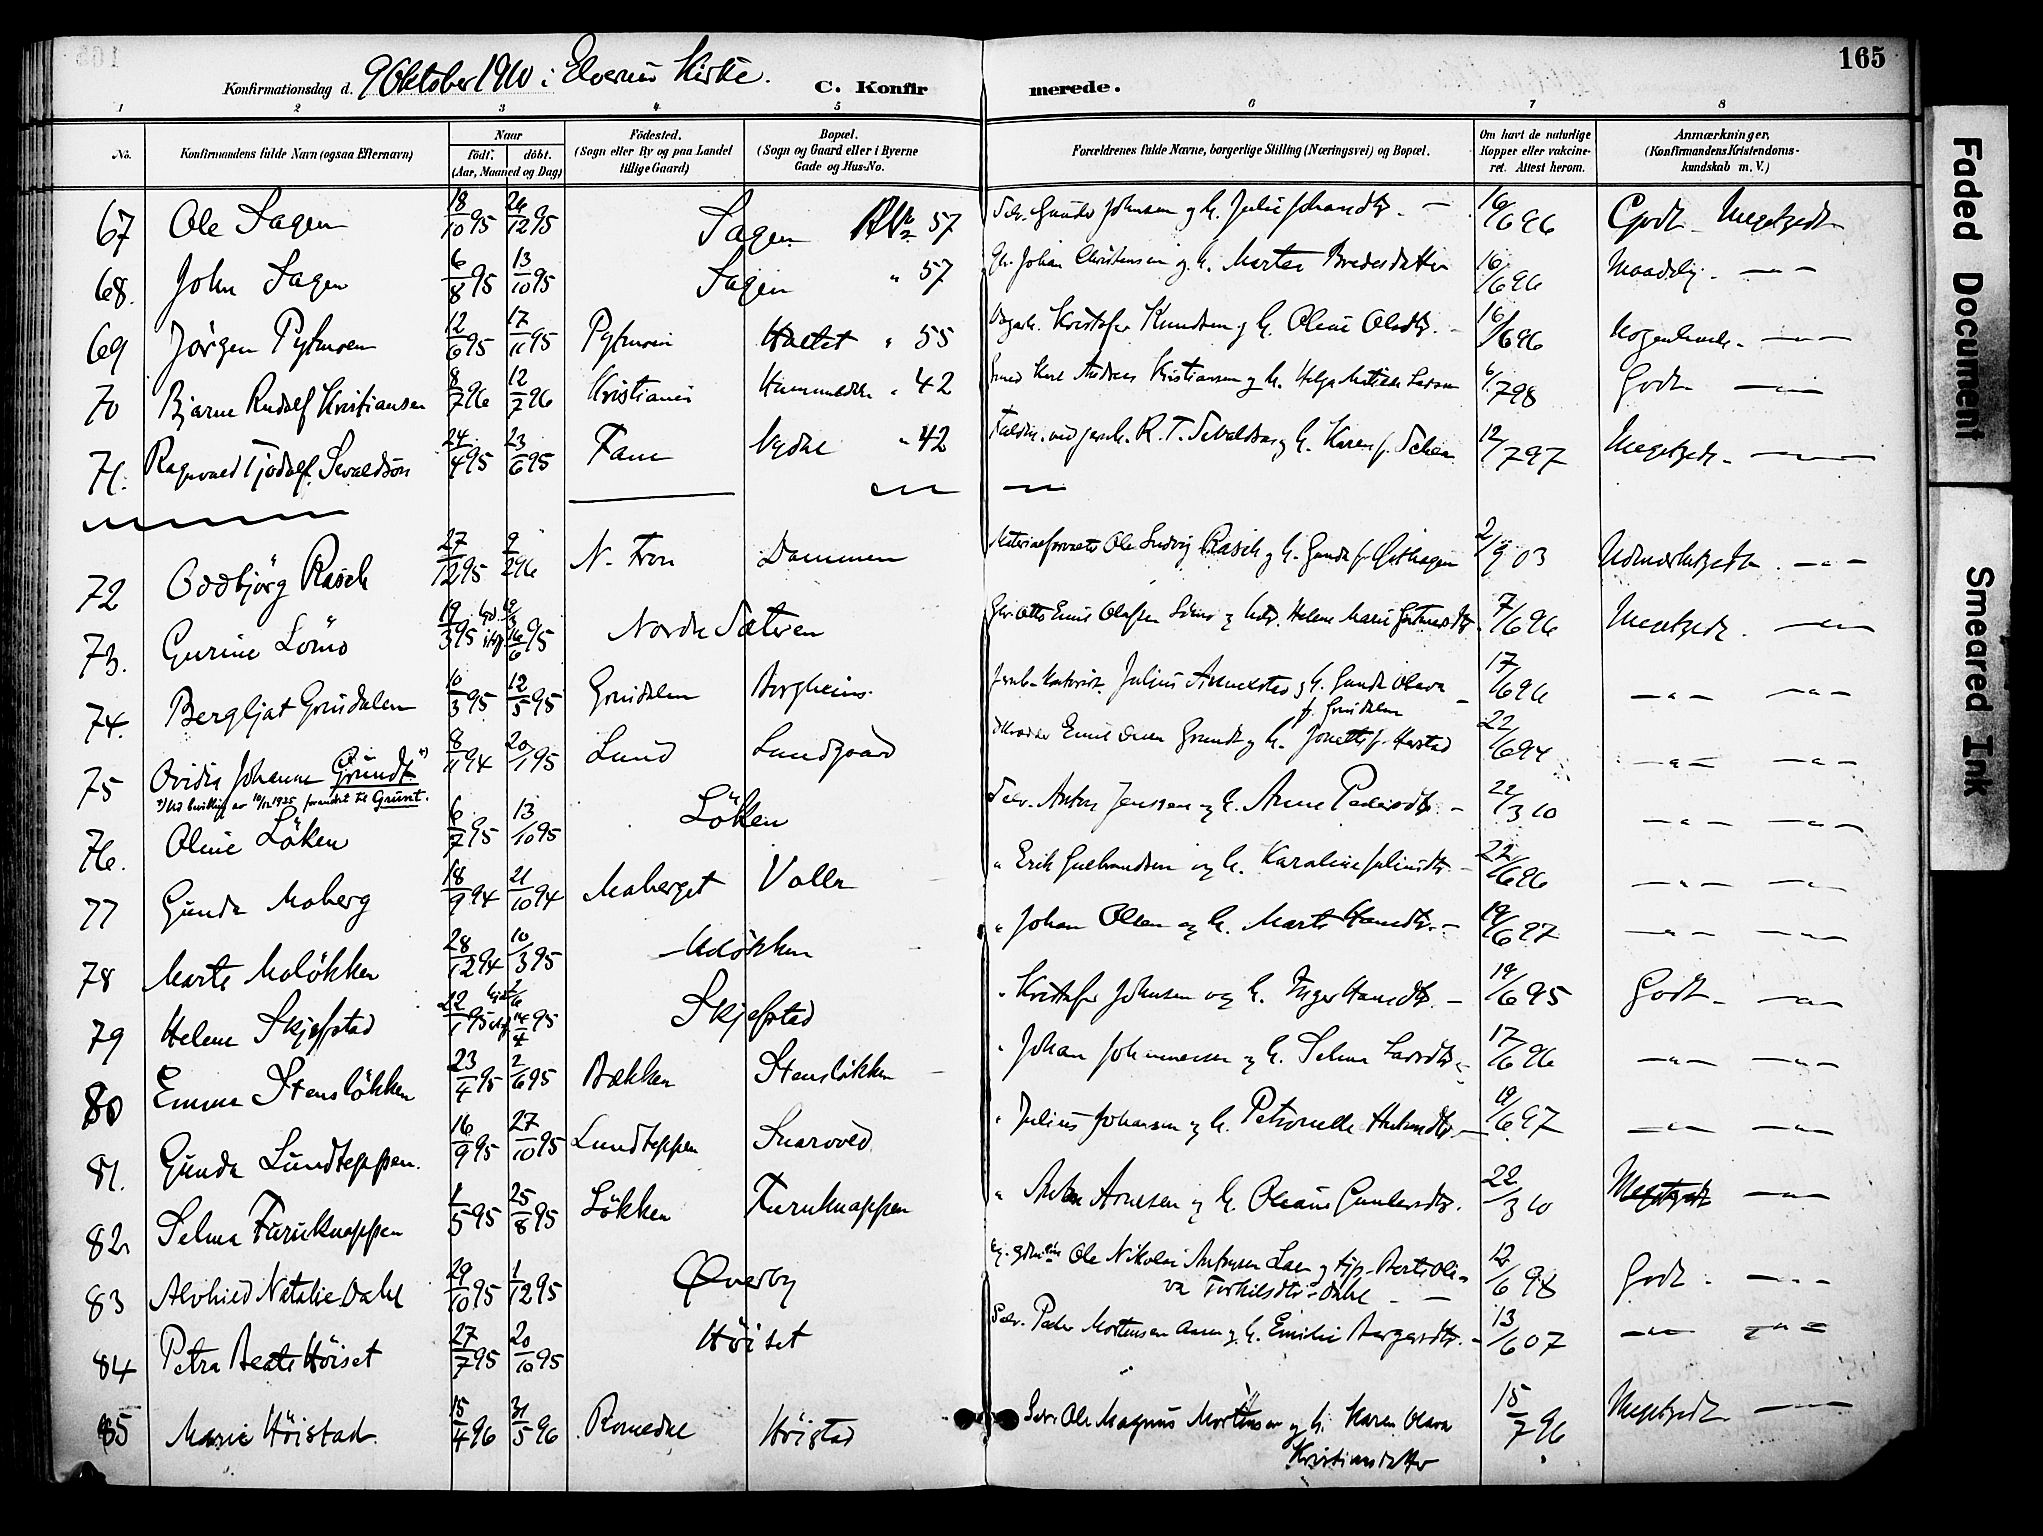 165
Konfirmationsdag d. 9 Oktober 1910 i Elverum Kirke.
C. Konfirmerede.
1 2 3 4 5 6 7 8
No. Konfirmandens fulde Navn (ogsaa Efternavn) Naar födt, döbt. (Aar, Maaned og Dag) Födested. (Sogn eller By og paa Landet tillige Gaard) Bopæl. (Sogn og Gaard eller i Byerne Gade og Hus-No. Forældrenes fulde Navne, borgerlige Stilling (Næringsvei) og Bopæl. Om havt de naturlige Kopper eller vakcineret. Attest herom. Anmærkninger, (Konfirmandens Kristendomskundskab m. V.)
67 Ole Sagen 18/10 95 26/12 95 Sagen 57 Gunder Johnsen og h. Julie Johansdtr. 16/6 96 Godt Megetgodt
68. John Sagen 6/8 95 13/10 95 Sagen " 57 Johan Christensen og h. Marten Bredesdatter 16/6 96 Maadelig. — " —
69 Jörgen Pytmoen 12/6 95 17/11 95 Pytmoen Haltet " 55 Kristofer Knudsen og h. Oline Olsdtr. 16/6 96 Nogenlunde — " —
70 Bjarne Rudolf Kristiansen 8/7 96 12/7 96 Kristiania " 42 Karl Andreas Kristiansen og h. Helga Mathilde Larsen 6/7 98 Godt — " —
71. Ragnvald Tjodolf Sevaldson 24/4 95 23/6 95 Fane Vydal " 42 R. T. Sevaldson og h. Karen f. Schem 12/7 97 Megetgodt — " —
72 Oddbjörg Rasch 27/12 95 9/2 96 N. Fron Dammen Ole Ludvig Rasch og h. Gunda f. Östhagen 2/9 03 Udmærketgodt — " —
73. Gurine Lömo 19/3 95 16/6 95 Nordre Sæteren Otto Emil Olafsen Lömo og Helene Marie 7/6 96 Megetgodt. — " —
74. Bergljot Grindalen 10/3 95 12/5 95 Grindalen Borgheim. Julius Annexstad og h. Gunda Olava f. Grindalen 17/6 96 — " — — " —
75 Ovidia Johanne Grundt *) 8/11 94 20/1 95 Lund Lundgaard Emil Grundt og h. Jonette f. Harstad 22/6 94 — " — — " —
*) Ved bevilling av 10/12 1925 forandret til Grunt.
76. Oline Löken 6/7 95 13/10 95 Löken Anton Jenssen og h. Anne Pedersdtr. 22/3 10 — " — — " —
77 Gunda Moberg 18/9 94 21/10 94 Moberget Volla " Erik Gulbrandsen og h. Karoline Juliusdtr. 22/6 96 — " — — " —
78 Marte Molökken 28/12 94 10/3 95 Molökken " Johan Olsen og h. Marte Hansdtr. 19/6 97 — " — — " —
79 Helene Skjefstad 22/1 95 14/4 95 Skjefstad " Kristofer Johnsen og h. Inger Hansdtr. 19/6 95 Godt — " —
80 Emma Stenslökken 23/4 95 2/6 95 Bækken Stenslökken " Johan Johannesen og h. Selma Larsdtr. 17/6 96 — " — — " —
81. Gunda Lundteppen. 16/9 95 27/10 95 Lundteppen Snaroved " Julius Johansen og h. Petronelle 19/6 97 — " — — " —
82 Selma Furuknappen 1/5 95 25/8 95 Lökken Furuknappen " Anton Arnesen og h. Oleane Gundersdtr. 22/3 10 Megetgodt — " —
83 Alvhild Natalie Dahl 29/10 95 1/12 95 Øverby Ole Nikolai Antonsen Lae og Berte Oliva Torkildsdtr. Dahl 12/6 98 Godt. — " —
84 Petra Beate Höiset 27/7 95 20/10 95 Höiset Peder Mortensen og h. Emilie 13/6 07 — " — — " —
85 Marie Höistad. 15/4 96 31/5 96 Romedal Höistad Ole Magnus Mortensen og h. Karen Olava Kristiansdatter 15/7 96 Megetgodt — " —
Faded Document
Smeared Ink